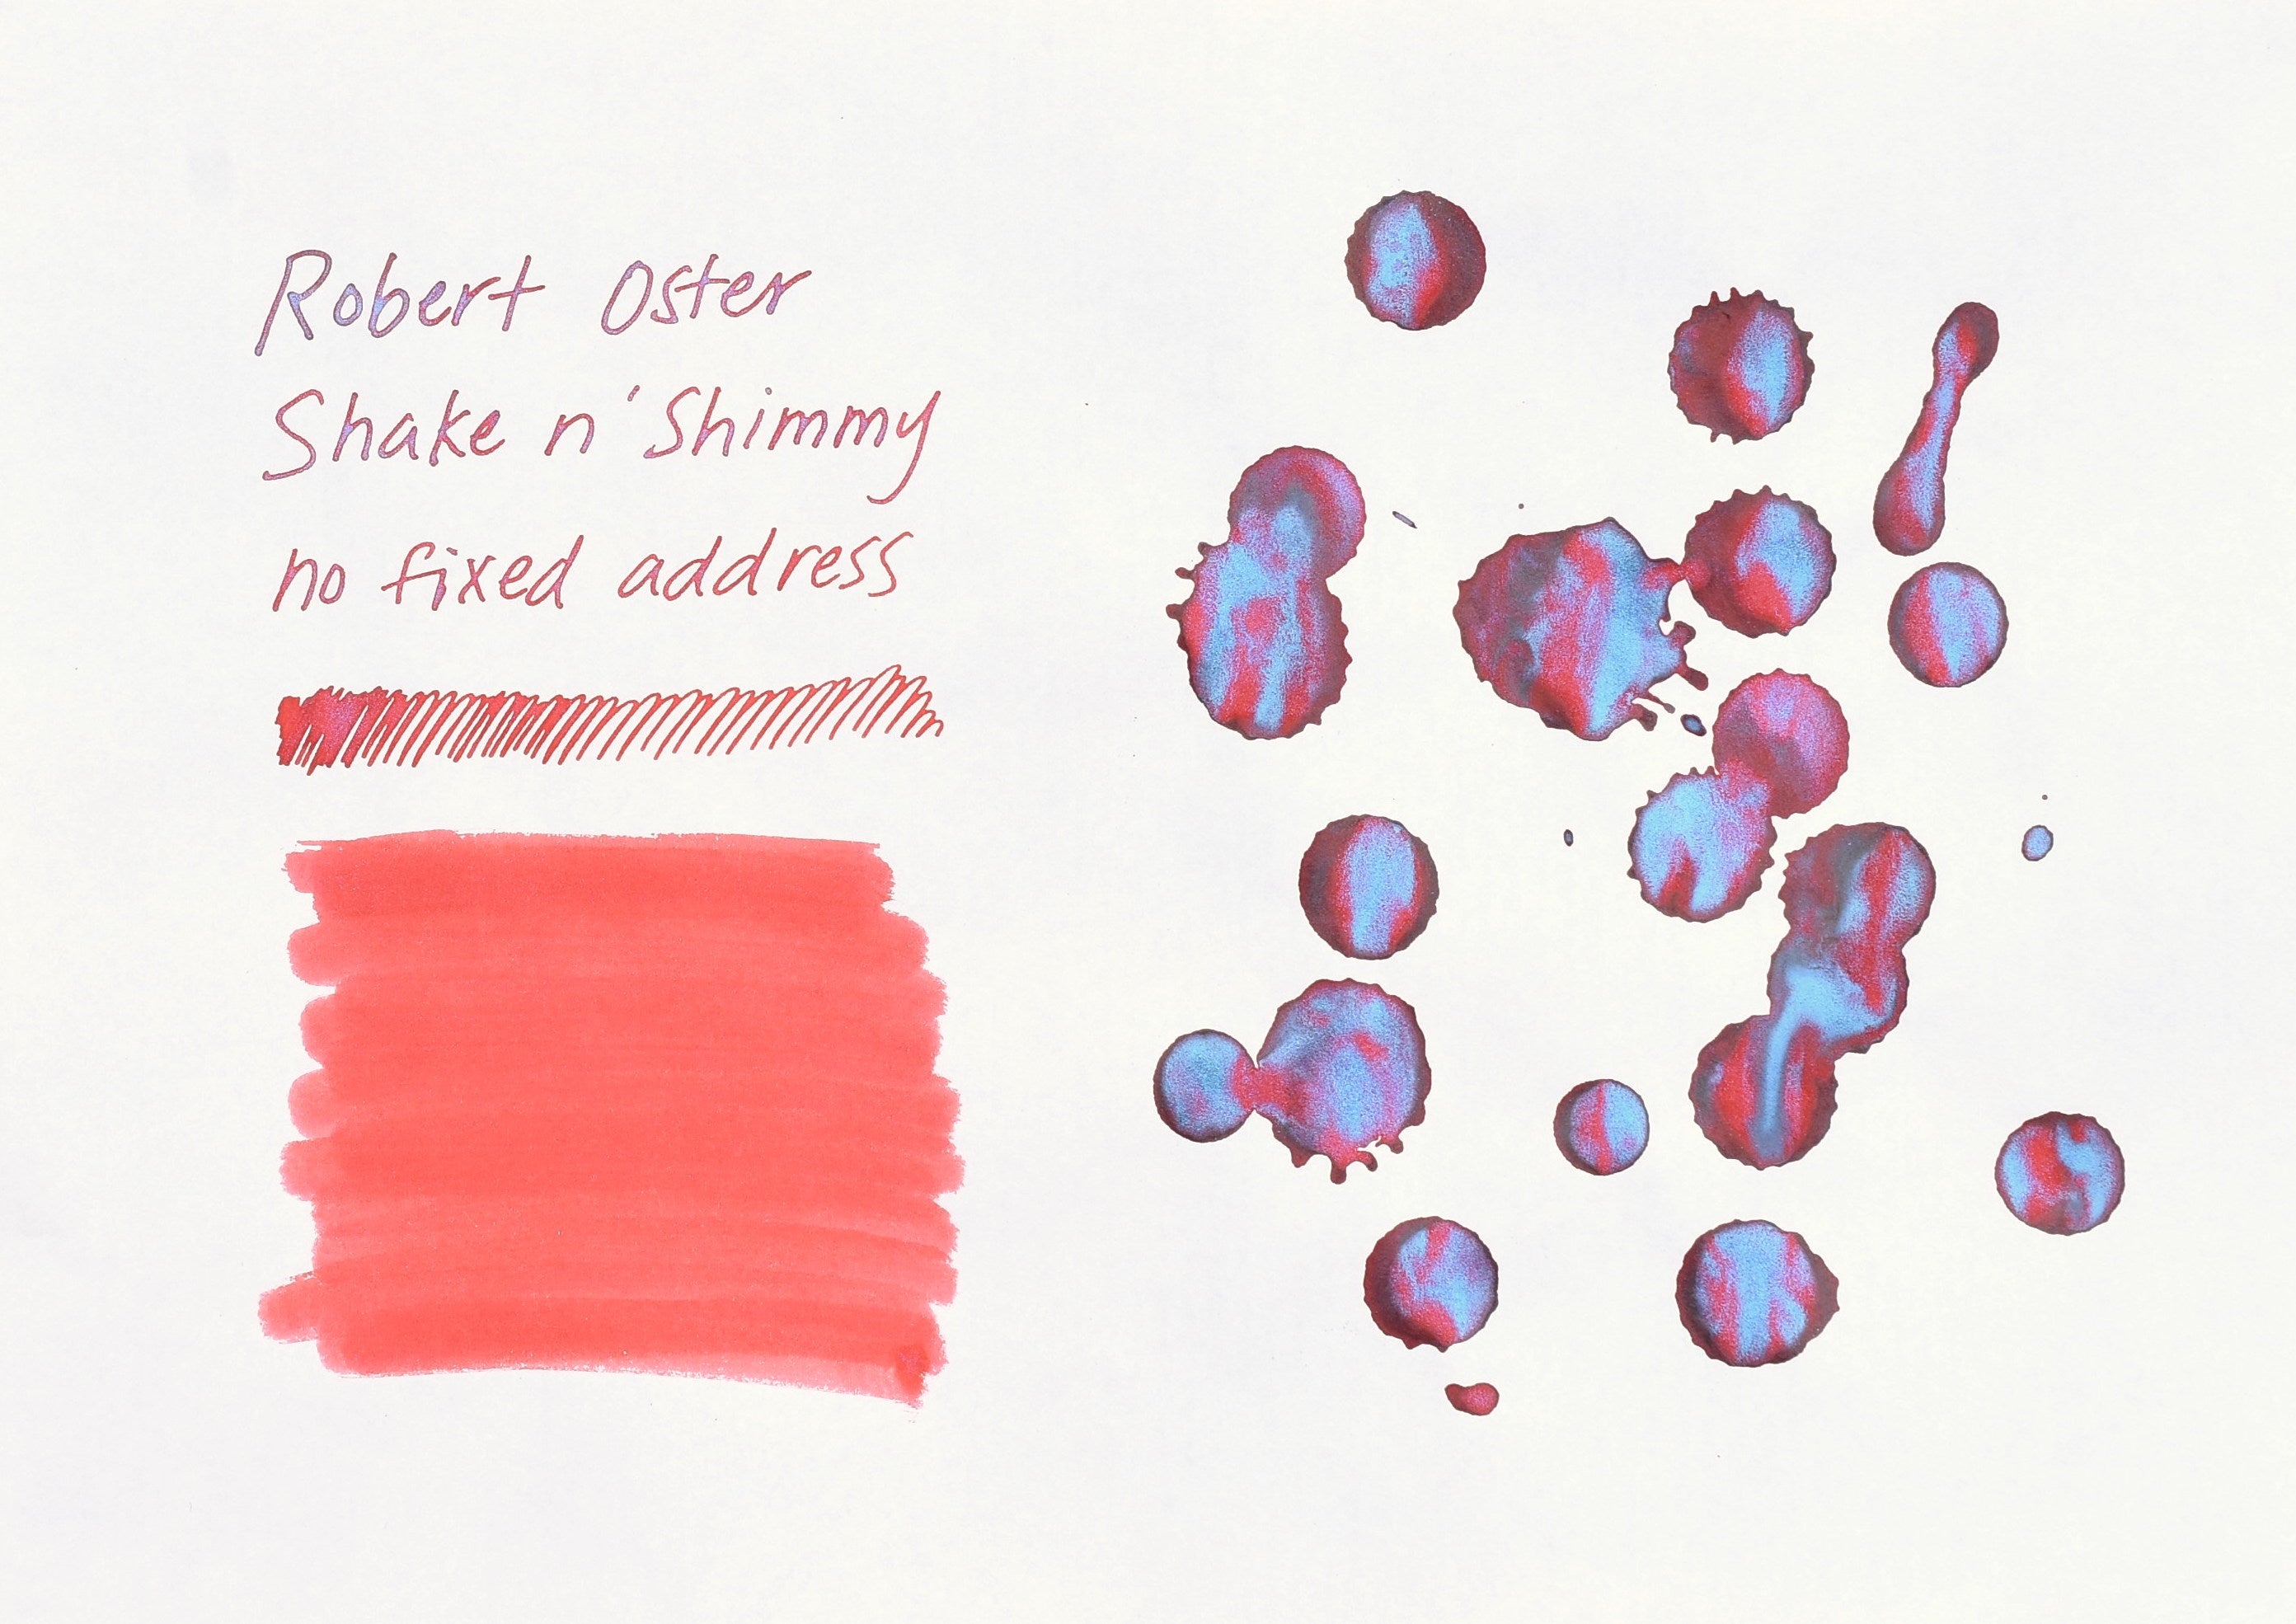 Robert Oster
Shake n' Shimmy
no fixed address